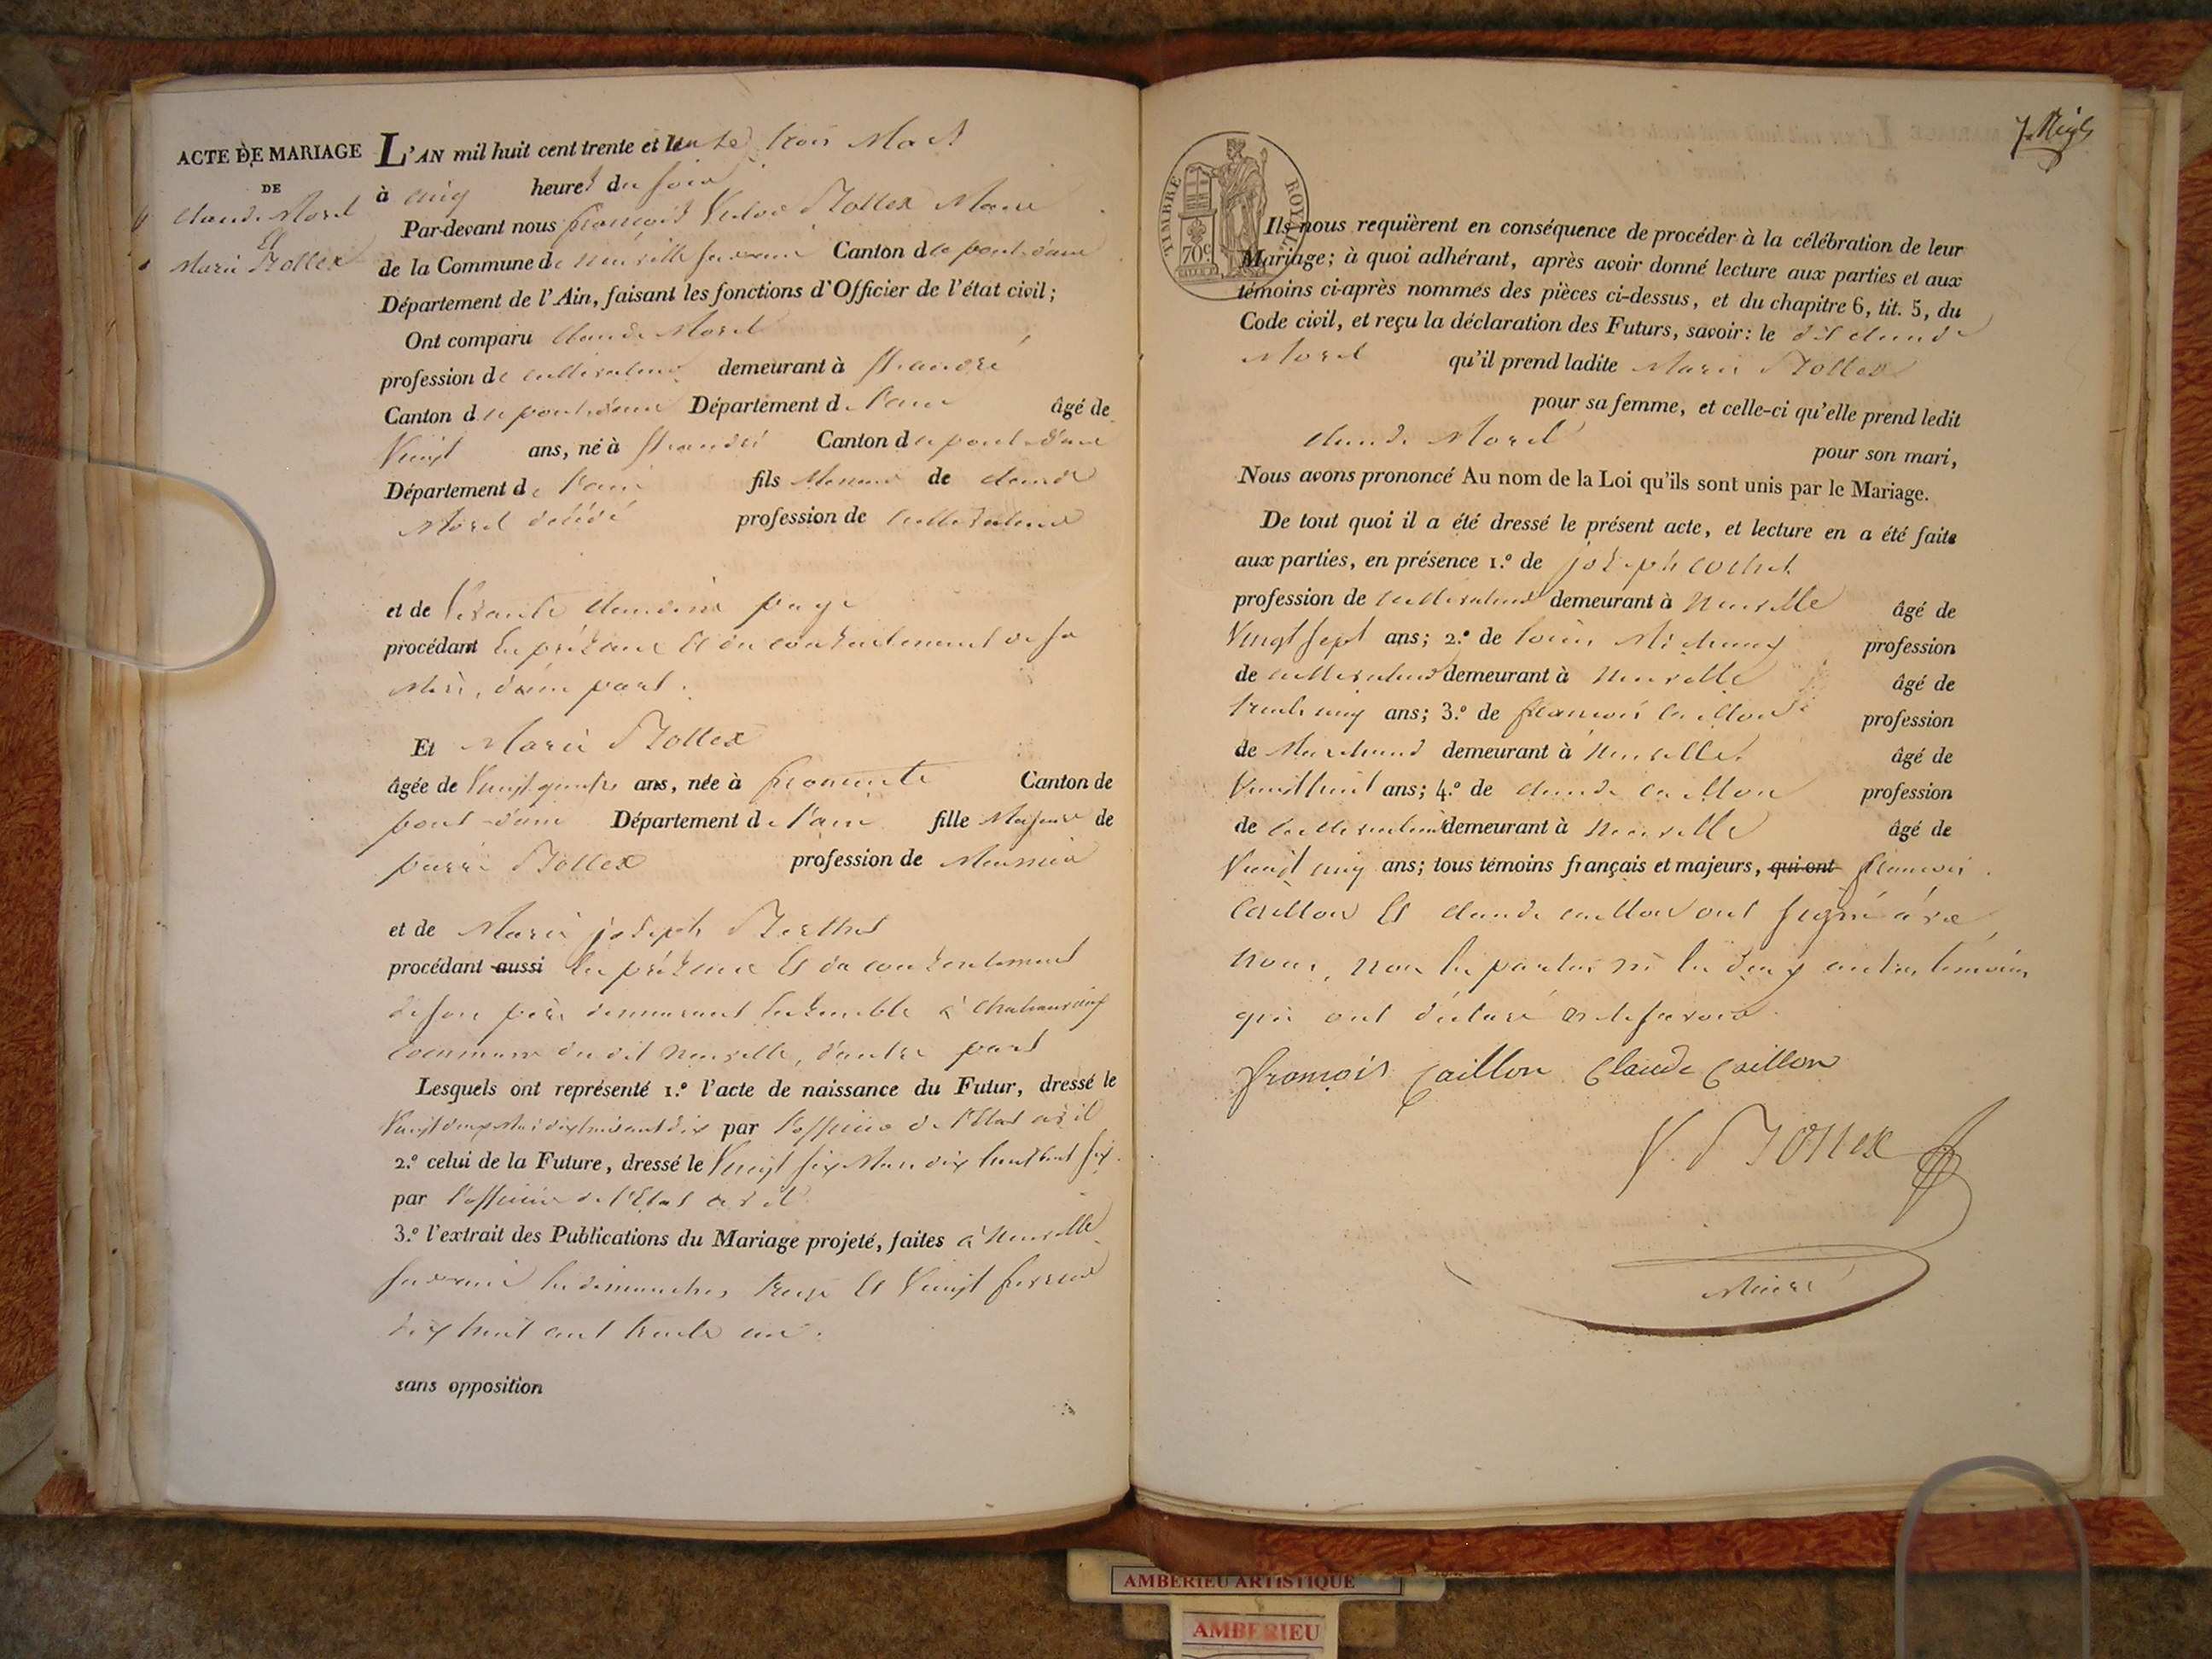 ACTE DE MARIAGE
DE
Claude Morel
Et
Marie Bottex
L'AN mil huit cent trente et un le trois Mars
à cinq heures du soir
Par-devant nous françois Victor Bottex Maire
de la Commune de neuville sur ain Canton de pont-d'ain
Département de l'Ain, faisant les fonctions d'Officier de l'état civil;
Ont comparu Claude Morel
profession de cultivateur demeurant à St andré
Canton de pont-d'ain Département de l'ain âgé de
Vingt ans, né à St andré Canton de pont-d'ain
Département de l'ain fils Mineur de claude
Morel décédé profession de cultivateur
et de claudine page
procédant En présence Et du consentement de sa
Mère, d'une part.
Et Marie Bottex
âgée de Vingt quatre ans, née à fromente Canton de
pont-d'ain Département de l'ain fille Majeure de
pierre Bottex profession de Meunier
et de Marie joseph Berthet
procédant aussi En présence Et du consentement
de son père demeurant Ensemble à
Commune du dit neuville, d'autre part
Lesquels ont représenté 1.º l'acte de naissance du Futur, dressé le
Vingt deux Mai dix huit cent dix par l'officier de l'Etat civil
2.º celui de la Future, dressé le Vingt six Mars dix huit cent six
par l'officier de l'Etat civil
3.º l'extrait des Publications du Mariage projeté, faites à neuville
sur ain les dimanches treize Et Vingt fevrier
dix huit cent trente un.
sans opposition
TIMBRE ROYAL
70 c.
Ils nous requièrent en conséquence de procéder à la célébration de leur
Mariage; à quoi adhérant, après avoir donné lecture aux parties et aux
témoins ci-après nommés des pièces ci-dessus, et du chapitre 6, tit. 5, du
Code civil, et reçu la déclaration des Futurs, savoir: le dit claude
Morel qu'il prend ladite Marie Bottex
pour sa femme, et celle-ci qu'elle prend ledit
claude Morel pour son mari,
Nous avons prononcé Au nom de la Loi qu'ils sont unis par le Mariage.
De tout quoi il a été dressé le présent acte, et lecture en a été faite
aux parties, en présence 1.º de joseph cochet
profession de cultivateur demeurant à Neuville âgé de
Vingt sept ans; 2.º de louis profession
de cultivateur demeurant à Neuville âgé de
trente cinq ans; 3.º de françois Caillon profession
de Marchand demeurant à Neuville âgé de
Vingt huit ans; 4.º de claude Caillon profession
de cultivateur demeurant à Neuville âgé de
Vingt cinq ans; tous témoins français et majeurs, qui ont françois
Caillon Et claude caillon ont signé avec
nous, non les parties ni les deux autres témoins
qui ont déclaré ne le savoir.
françois Caillon Claude Caillon
V. Bottex
Maire
AMBERIEU ARTISTIQUE
AMBERIEU